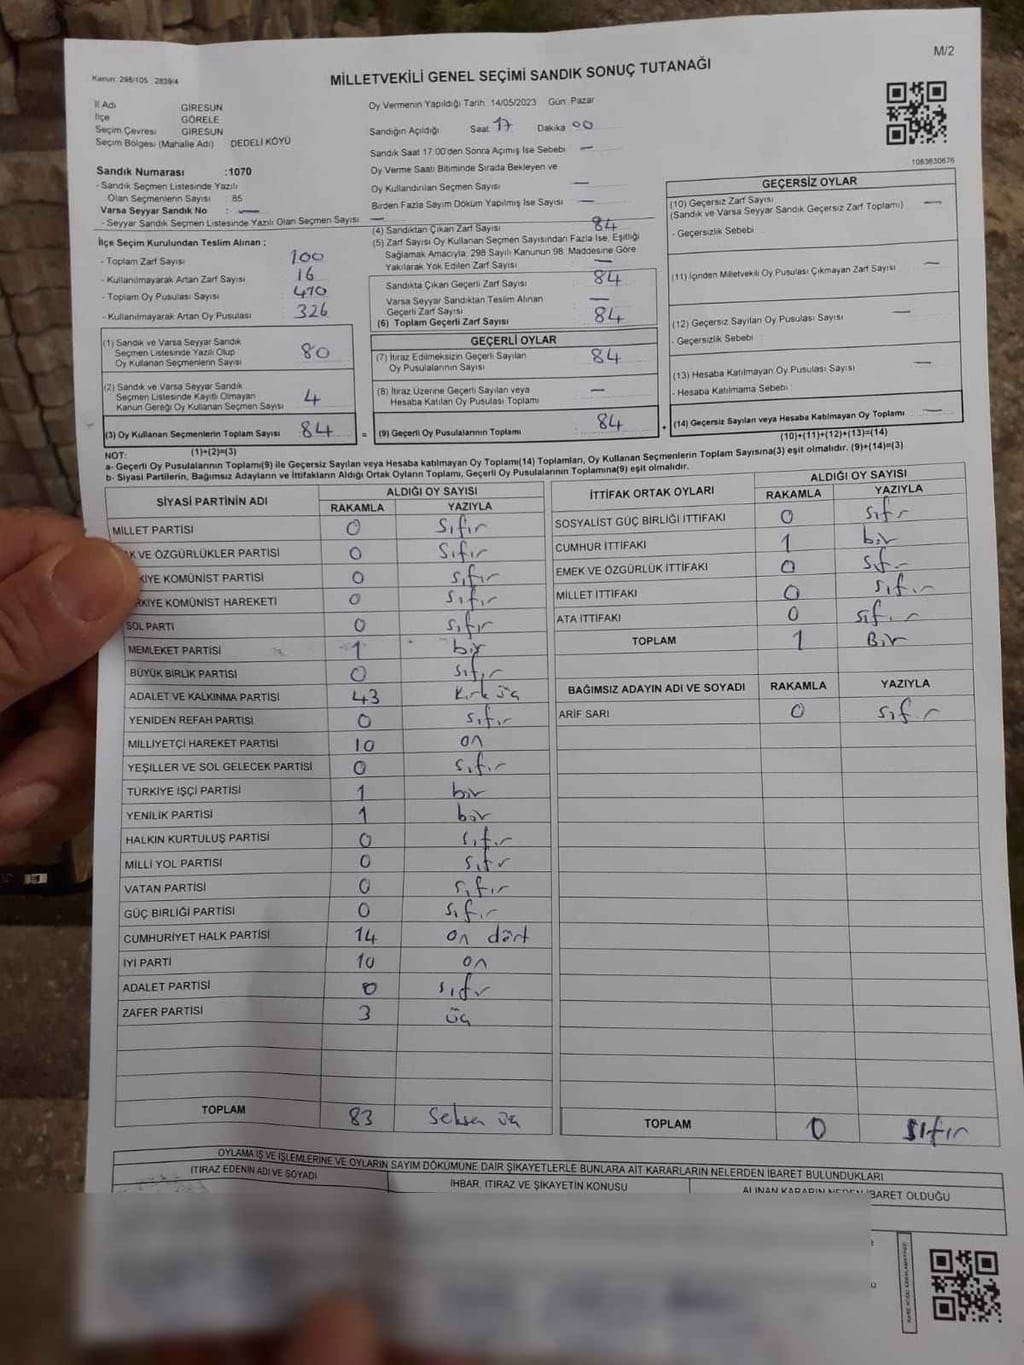 M/2
Kanun: 298/105 2839/4
MİLLETVEKİLİ GENEL SEÇİMİ SANDIK SONUÇ TUTANAĞI
İl Adı GİRESUN
İlçe GÖRELE
Seçim Çevresi GİRESUN
Seçim Bölgesi (Mahalle Adı) DEDELİ KÖYÜ
Sandık Numarası :1070
- Sandık Seçmen Listesinde Yazılı
Olan Seçmenlerin Sayısı : 85
Varsa Seyyar Sandık No : —
- Seyyar Sandık Seçmen Listesinde Yazılı Olan Seçmen Sayısı —
İlçe Seçim Kurulundan Teslim Alınan ;
- Toplam Zarf Sayısı : 100
- Kullanılmayarak Artan Zarf Sayısı : 16
- Toplam Oy Pusulası Sayısı : 410
- Kullanılmayarak Artan Oy Pusulası : 326
(1) Sandık ve Varsa Seyyar Sandık
Seçmen Listesinde Yazılı Olup
Oy Kullanan Seçmenlerin Sayısı 80
(2) Sandık ve Varsa Seyyar Sandık
Seçmen Listesinde Kayıtlı Olmayan
Kanun Gereği Oy Kullanan Seçmen Sayısı 4
(3) Oy Kullanan Seçmenlerin Toplam Sayısı 84
(1)+(2)=(3)
Oy Vermenin Yapıldığı Tarih 14/05/2023 Gün Pazar
Sandığın Açıldığı Saat 17 Dakika 00
Sandık Saat 17:00'den Sonra Açımış İse Sebebi —
Oy Verme Saati Bitiminde Sırada Bekleyen ve
Oy Kullandırılan Seçmen Sayısı —
Birden Fazla Sayım Döküm Yapılmış İse Sayısı —
(4) Sandıktan Çıkan Zarf Sayısı : 84
(5) Zarf Sayısı Oy Kullanan Seçmen Sayısından Fazla İse, Eşitliği
Sağlamak Amacıyla, 298 Sayılı Kanunun 98. Maddesine Göre
Yakılarak Yok Edilen Zarf Sayısı —
Sandıkta Çıkan Geçerli Zarf Sayısı : 84
Varsa Seyyar Sandıktan Teslim Alınan
Geçerli Zarf Sayısı —
(6) Toplam Geçerli Zarf Sayısı : 84
GEÇERLİ OYLAR
(7) İtiraz Edilmeksizin Geçerli Sayılan
Oy Pusulalarının Sayısı 84
(8) İtiraz Üzerine Geçerli Sayılan veya
Hesaba Katılan Oy Pusulası Toplamı —
= (9) Geçerli Oy Pusulalarının Toplamı 84
1063630676
GEÇERSİZ OYLAR
(10) Geçersiz Zarf Sayısı
(Sandık ve Varsa Seyyar Sandık Geçersiz Zarf Toplamı) —
- Geçersizlik Sebebi :
(11) İçinden Milletvekili Oy Pusulası Çıkmayan Zarf Sayısı —
(12) Geçersiz Sayılan Oy Pusulası Sayısı —
- Geçersizlik Sebebi :
(13) Hesaba Katılmayan Oy Pusulası Sayısı —
- Hesaba Katılmama Sebebi :
+ (14) Geçersiz Sayılan veya Hesaba Katılmayan Oy Toplamı —
(10)+(11)+(12)+(13)=(14)
NOT:
a- Geçerli Oy Pusulalarının Toplamı(9) ile Geçersiz Sayılan veya Hesaba katılmayan Oy Toplamı(14) Toplamları, Oy Kullanan Seçmenlerin Toplam Sayısına(3) eşit olmalıdır. (9)+(14)=(3)
b- Siyasi Partilerin, Bağımsız Adayların ve İttifakların Aldığı Ortak Oyların Toplamı, Geçerli Oy Pusulalarının Toplamına(9) eşit olmalıdır.
SİYASİ PARTİNİN ADI ALDIĞI OY SAYISI
RAKAMLA YAZIYLA
MİLLET PARTİSİ 0 Sıfır
K VE ÖZGÜRLÜKLER PARTİSİ 0 Sıfır
KİYE KOMÜNİST PARTİSİ 0 Sıfır
RKİYE KOMÜNİST HAREKETİ 0 Sıfır
SOL PARTİ 0 Sıfır
MEMLEKET PARTİSİ 1 bir
BÜYÜK BİRLİK PARTİSİ 0 Sıfır
ADALET VE KALKINMA PARTİSİ 43 Kırk üç
YENİDEN REFAH PARTİSİ 0 sıfır
MİLLİYETÇİ HAREKET PARTİSİ 10 on
YEŞİLLER VE SOL GELECEK PARTİSİ 0 sıfır
TÜRKİYE İŞÇİ PARTİSİ 1 bir
YENİLİK PARTİSİ 1 bir
HALKIN KURTULUŞ PARTİSİ 0 sıfır
MİLLİ YOL PARTİSİ 0 sıfır
VATAN PARTİSİ 0 sıfır
GÜÇ BİRLİĞİ PARTİSİ 0 sıfır
CUMHURİYET HALK PARTİSİ 14 on dört
İYİ PARTİ 10 on
ADALET PARTİSİ 0 sıfır
ZAFER PARTİSİ 3 üç
TOPLAM 83 Seksen üç
İTTİFAK ORTAK OYLARI ALDIĞI OY SAYISI
RAKAMLA YAZIYLA
SOSYALİST GÜÇ BİRLİĞİ İTTİFAKI 0 sıfır
CUMHUR İTTİFAKI 1 bir
EMEK VE ÖZGÜRLÜK İTTİFAKI 0 sıfır
MİLLET İTTİFAKI 0 sıfır
ATA İTTİFAKI 0 sıfır
TOPLAM 1 Bir
BAĞIMSIZ ADAYIN ADI VE SOYADI RAKAMLA YAZIYLA
ARİF SARI 0 sıfır
TOPLAM 0 sıfır
OYLAMA İŞ VE İŞLEMLERİNE VE OYLARIN SAYIM DÖKÜMÜNE DAİR ŞİKAYETLERLE BUNLARA AİT KARARLARIN NELERDEN İBARET BULUNDUKLARI
İTİRAZ EDENİN ADI VE SOYADI İHBAR, İTİRAZ VE ŞİKAYETİN KONUSU ALINAN KARARIN NEDEN İBARET OLDUĞU